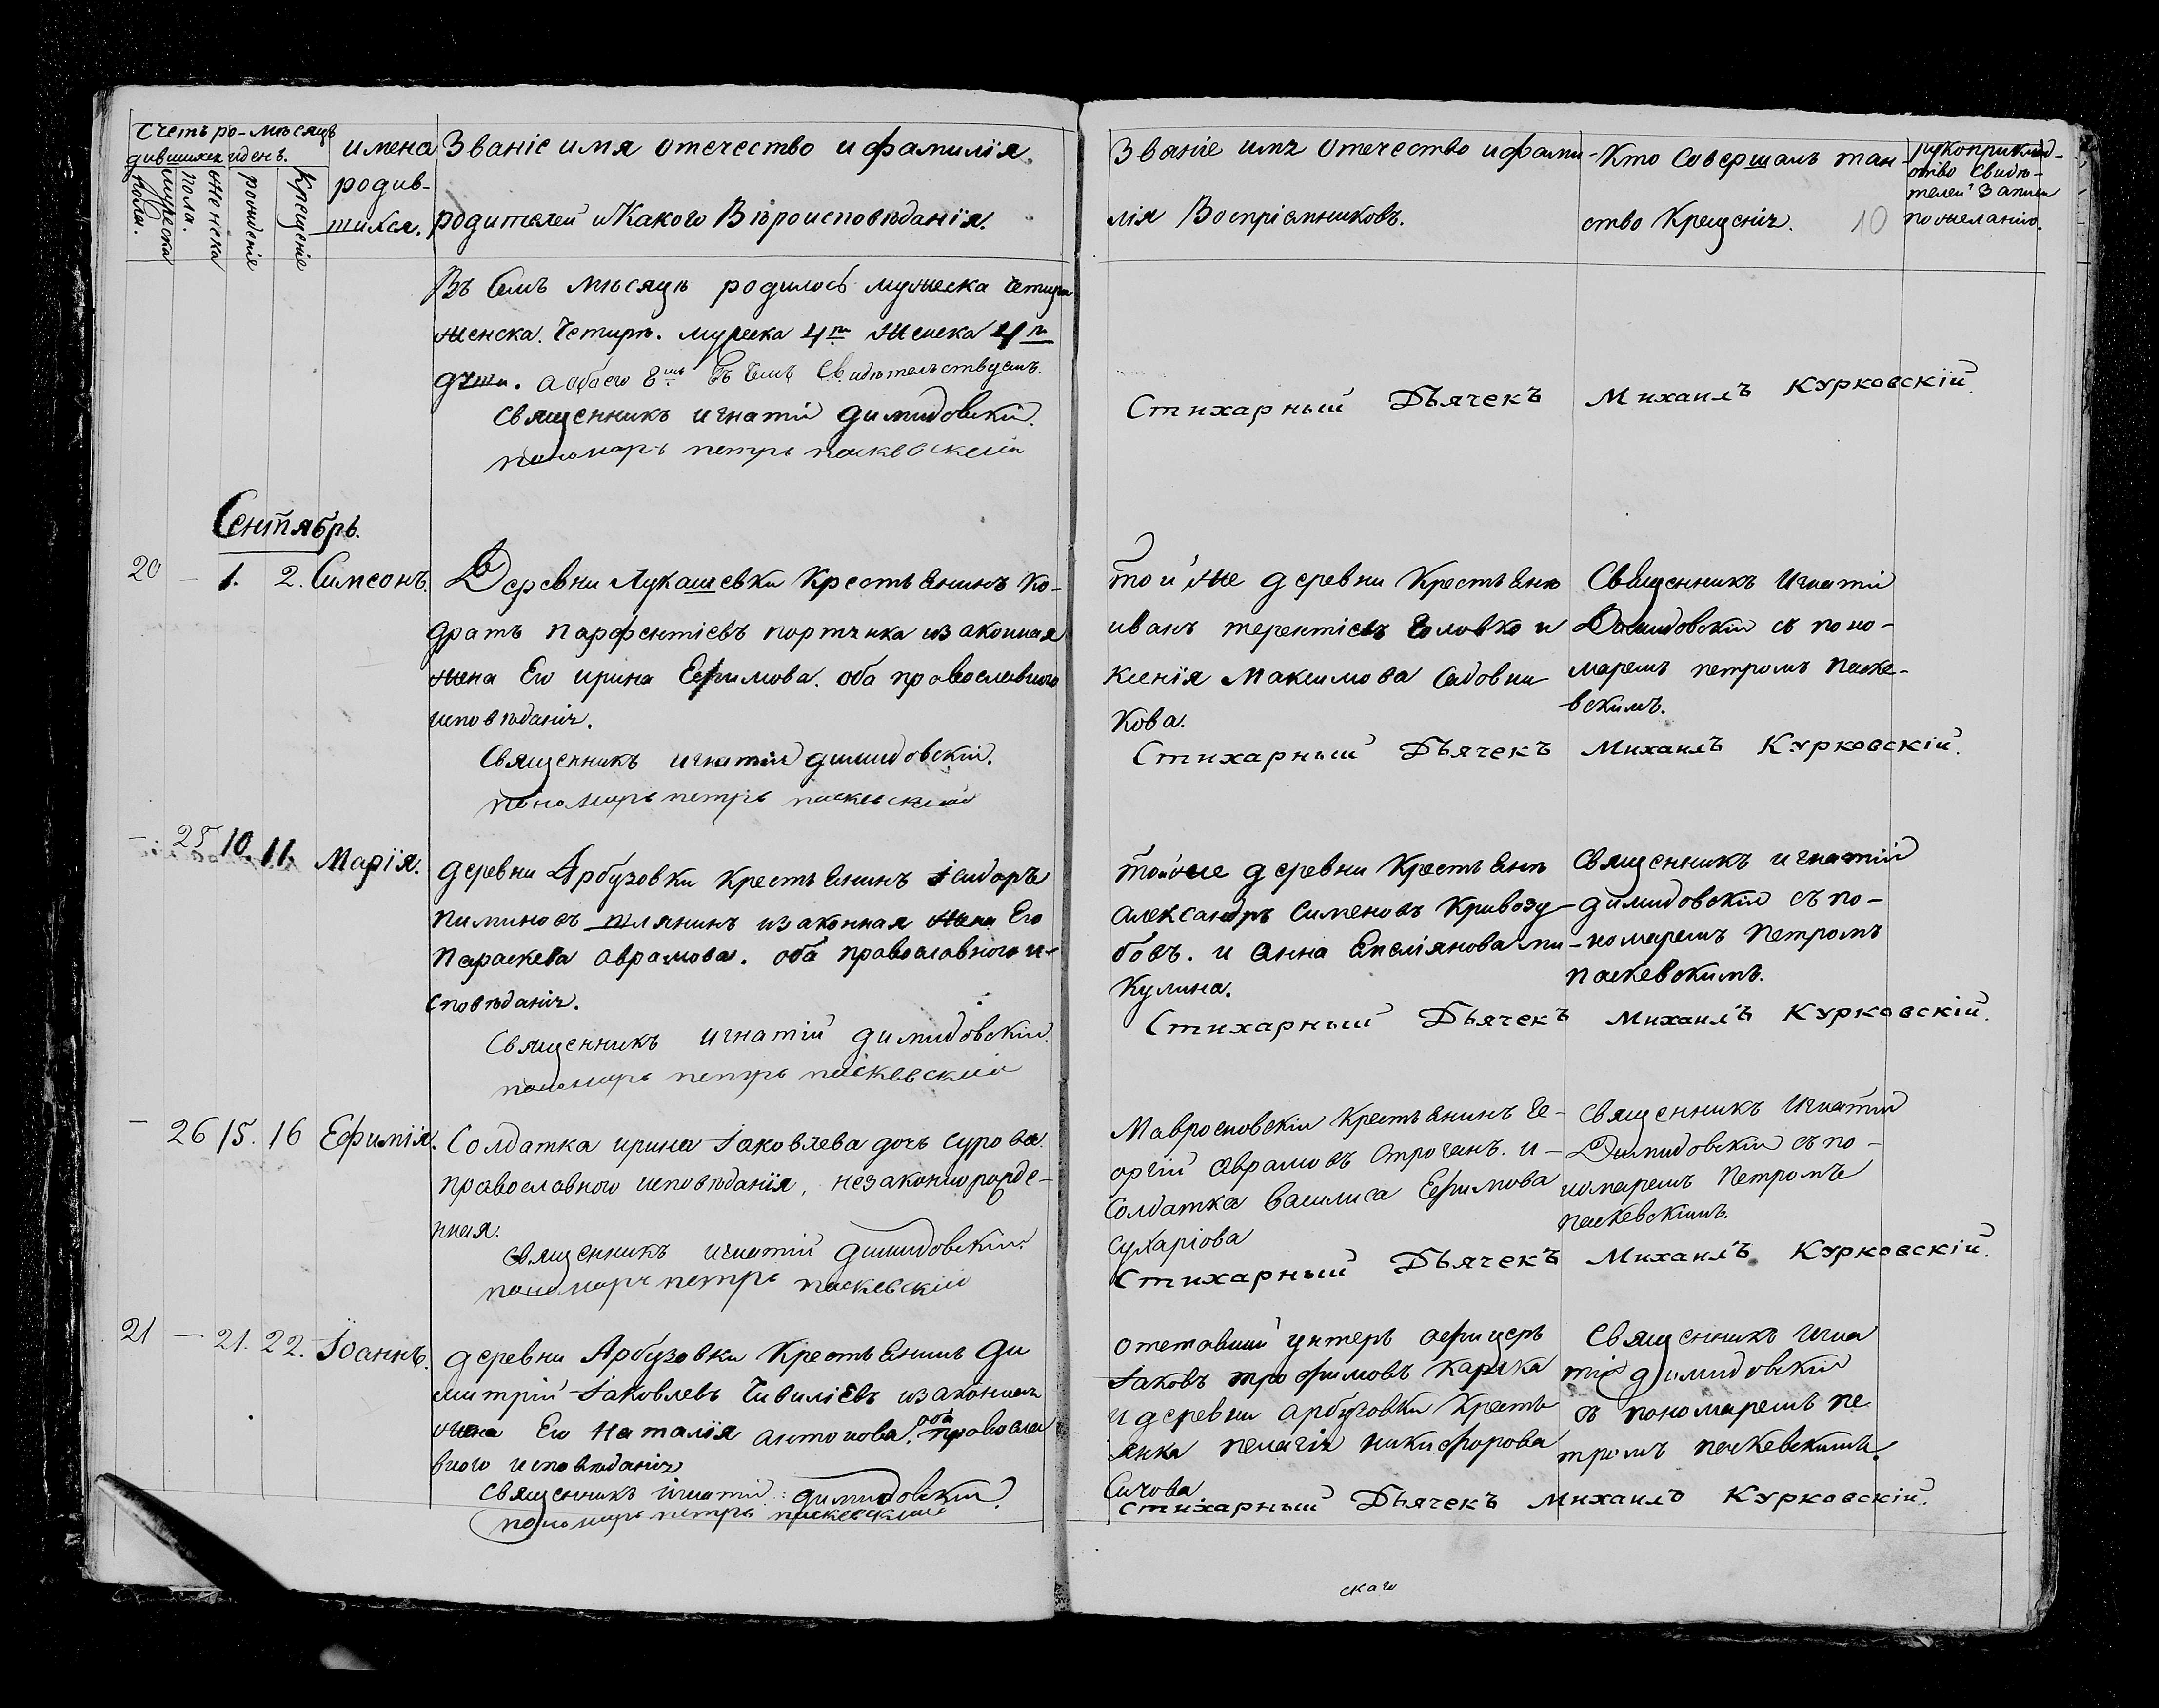 Счетъ ро- мѣсяцъ
дившихся и день.
мужеска пола.
женска пола.
рожденіе
крещеніе
имена родив-
шихся.
Званіе имя отечество и фамилія
родителей и Какого Вѣроисповѣданія.
Званіе имя отечество и фами-
лія Воспріемниковъ.
Кто Совершалъ таи-
ство Крещенія. 10
рукоприклад-
ство Свидѣ-
телей Записи
по желанію.
Въ Семъ мѣсяцѣ родилось мужеска Четыри
женска. Четыри. мужеска 4ри женска 4ри
а обоего 8мь Въ Чемъ Свидѣтельствуемъ.
Священникъ игнатій димидовскій.
пономарь петръ паскевскій
Стихарный Дьячекъ Михаилъ Курковскій.
Сентябрь.
20 – 1. 2. Симеонъ.
Деревни Лукашевки Крестьянинъ Ко-
дратъ парфентіевъ портянка изаконная
жена Его ирина Ефимова. оба православного
исповѣданія.
Священникъ игнатій димидовскій.
пономарь петръ паскевскій
той же деревни Крестьяне
иванъ терентіевъ Головко и
ксенія Максимова Садовни
кова.
Священникъ Игнатій
Димидовскій съ поно-
маремъ петромъ паске-
вскимъ.
Стихарный Дьячекъ Михаилъ Курковскій.
– 25 10. 11. Марія.
деревни Арбузовки крестьянинъ Ісидоръ
пиминовъ изаконная жена Его
Параскева аврамова. оба православного и-
сповѣданія.
Священникъ игнатій димидовскій.
пономарь петръ паскевскій
той же деревни Крестьяне
Александръ Сименовъ Кривозу-
бовъ. и Анна Емеліянова ми-
Кулина.
Священникъ игнатій
димидовскій съ по-
номаремъ Петромъ
паскевскимъ.
Стихарный Дьячекъ Михаилъ Курковскій.
– 26 15. 16 Ефимія.
Солдатка ирина Іаковлева дочь Сурова.
православного исповѣданія, незаконнорожде-
нная.
Священникъ игнатій димидовскій.
пономарь петръ паскевскій
Крестьянинъ Ге-
оргій аврамовъ Строганъ. и
Солдатка василиса Ефимова
Сухаріова
Священникъ Игнатій
Димидовскій съ по-
номаремъ Петромъ
паскевскимъ.
Стихарный Дьячекъ Михаилъ Курковскій.
21 – 21. 22. Іоаннъ.
деревни Арбузовки Крестьянинъ Ди
митрій Іаковлевъ Чивиліевъ изаконная
жена Его Наталія антонова. оба православ
вного исповѣданія
Священникъ игнатій димидовскій.
пономарь петръ паскевскій
отставный унтеръ офицеръ
Іаковъ трофимовъ
и деревни арбузовки Кресть
янка пелагія никифорова
Сичова
Священникъ игна
тій димидовскій
съ пономаремъ пе
тромъ паскевскимъ.
Стихарный Дьячекъ Михаилъ Курковскій.
скаго